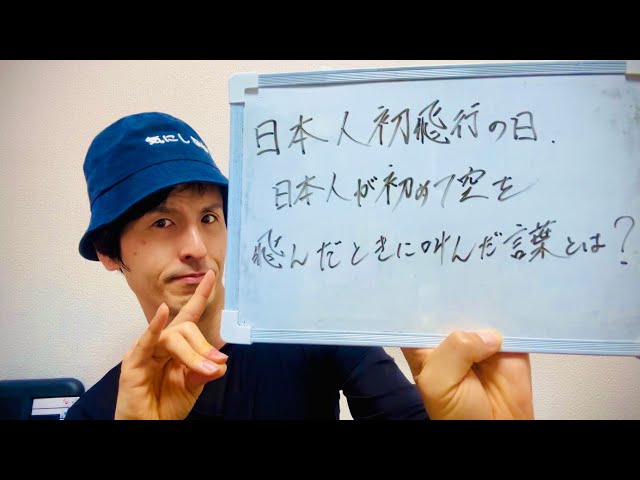 気にし
日本人初飛行の日.
日本人が初めて空を
飛んだときに叫んだ言葉とは?